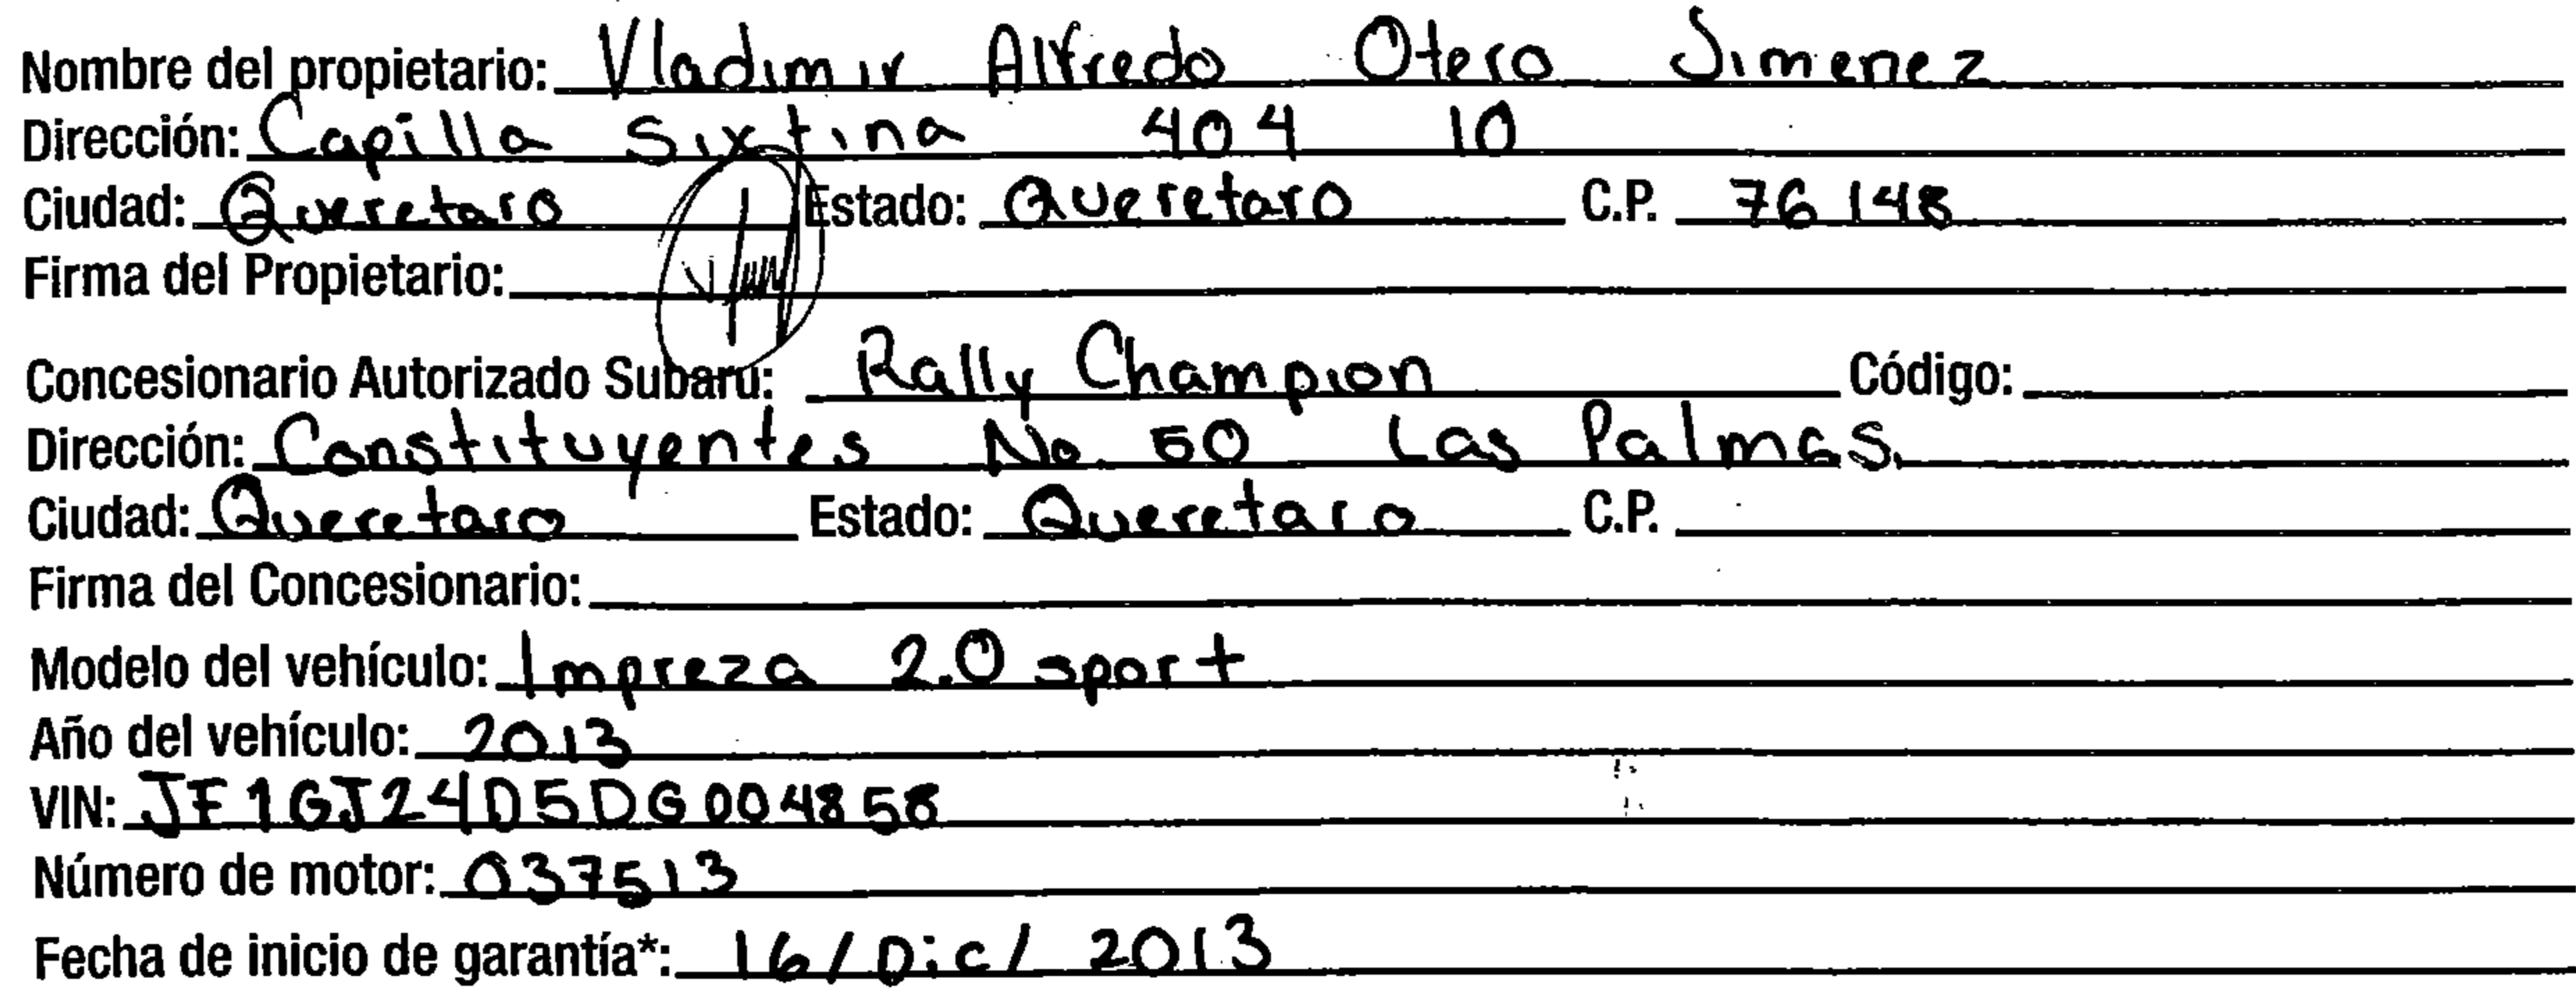 Nombre del propietario: Vladimir Alfredo Otero Jimenez
Dirección: Capilla Sixtina 404 10
Ciudad: Queretaro Estado: Queretaro C.P. 76148
Firma del Propietario:
Concesionario Autorizado Subaru: Rally Champion Código:
Dirección: Constituyentes No. 50 Las Palmas.
Ciudad: Queretaro Estado: Queretaro C.P.
Firma del Concesionario:
Modelo del vehículo: Impreza 2.0 sport
Año del vehículo: 2013
VIN: JF1GJ24D5DG004858
Número de motor: 037513
Fecha de inicio de garantía*: 16/Dic/ 2013